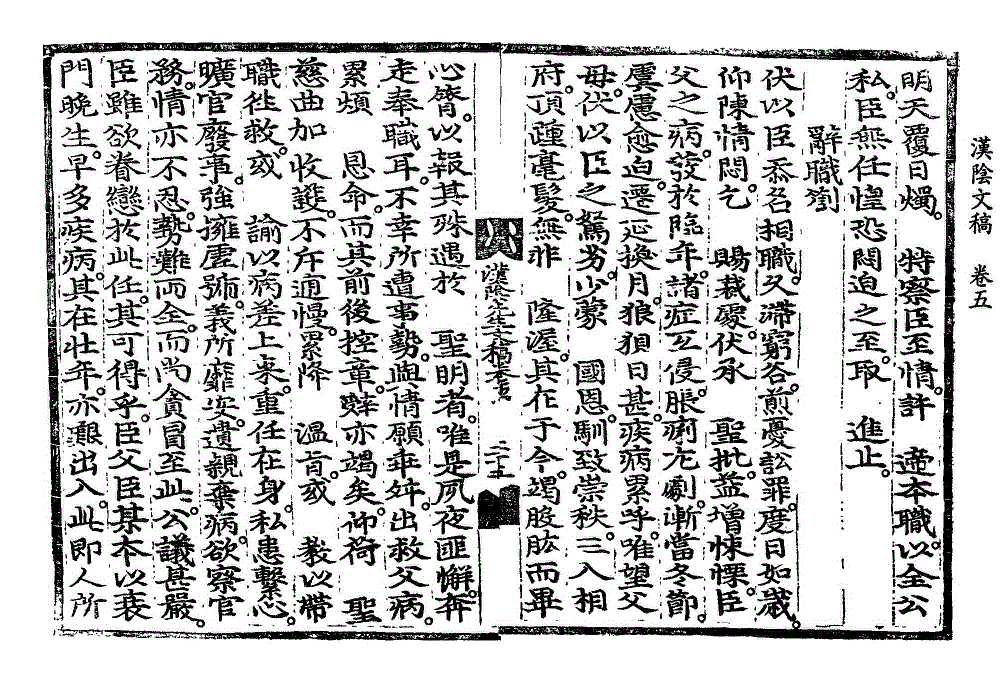 漢陰文稿　卷五
明天覆日燭。　特察臣至情。許　遞本職。以全公
私。臣無任惶恐悶迫之至。取　進止。
辭職劄
伏以臣忝名相職。久滯窮谷。煎憂訟罪。度日如歲。
仰陳情悶。乞　賜裁處。伏承　聖批。益增悚慄。臣
父之病。發於臨年。諸症互侵。脹痢尤劇。漸當冬節。
虞慮愈迫。遷延換月。狼狽日甚。疾病累呼。唯望父
母。伏以臣之駑劣。少蒙　國恩。馴致崇秩。三入相
府。頂踵毫髮。無非　隆渥。其在于今。竭股肱而畢
漢陰先生文稿卷五　二十五
心膂。以報其殊遇於　聖明者。唯是夙夜匪懈。奔
走奉職耳。不幸所遭事勢。與情願乖舛。出救父病。
累煩　恩命。而其前後控章。辭亦竭矣。仰荷　聖
慈曲加收蓬。不斥逋慢。累降　溫旨。或　敎以帶
職往救。或　諭以病差上來。重任在身。私患繫心。
曠官廢事。強擁虛號。義所靡安。遺親棄病。欲察官
務。情亦不忍。勢難兩全。而尙貪冒至此。公議甚嚴。
臣雖欲眷戀於此任。其可得乎。臣父臣某本以衰
門晩生。早多疾病。其在壯年。亦艱出入。此即人所